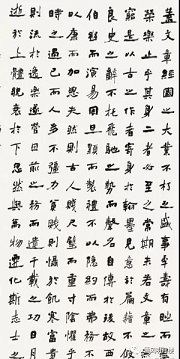 蓋文章經國之大業不朽之盛事年壽有時而盡
榮樂止乎其身二者必至之常期未若文章之無
窮是以古之作者寄身於翰墨見意於篇籍不假
良史之辭不託飛馳之勢而聲名自傳於後故西
伯幽而演易周旦顯而制禮不以隱約而弗務不
以康樂而加思夫然則古人賤尺璧而重寸陰懼乎
時之過已而人多不強力貧賤則懾於飢寒富貴
則流於逸樂遂營目前之務而遺千載之功日月
逝於上體貌衰於下忽然與萬物遷化斯志士之